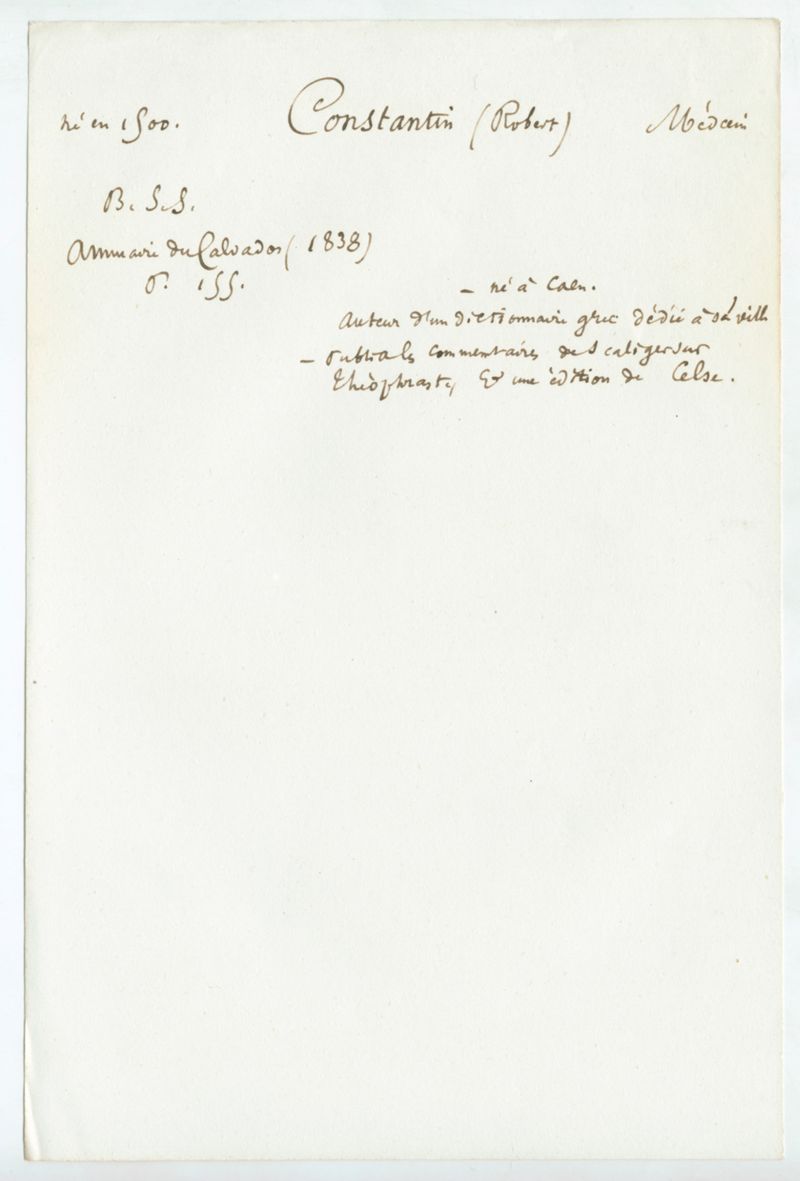 né en 1500. Constantin (Robert) Médecin
B. S. S.
Annuaire du Calvados (1838)
p. 155.
– né à Caen.
Auteur d'un dictionnaire grec dédié à sa ville
– publia les commentaires de Scaliger sur
théophraste, & une édition de Celse.